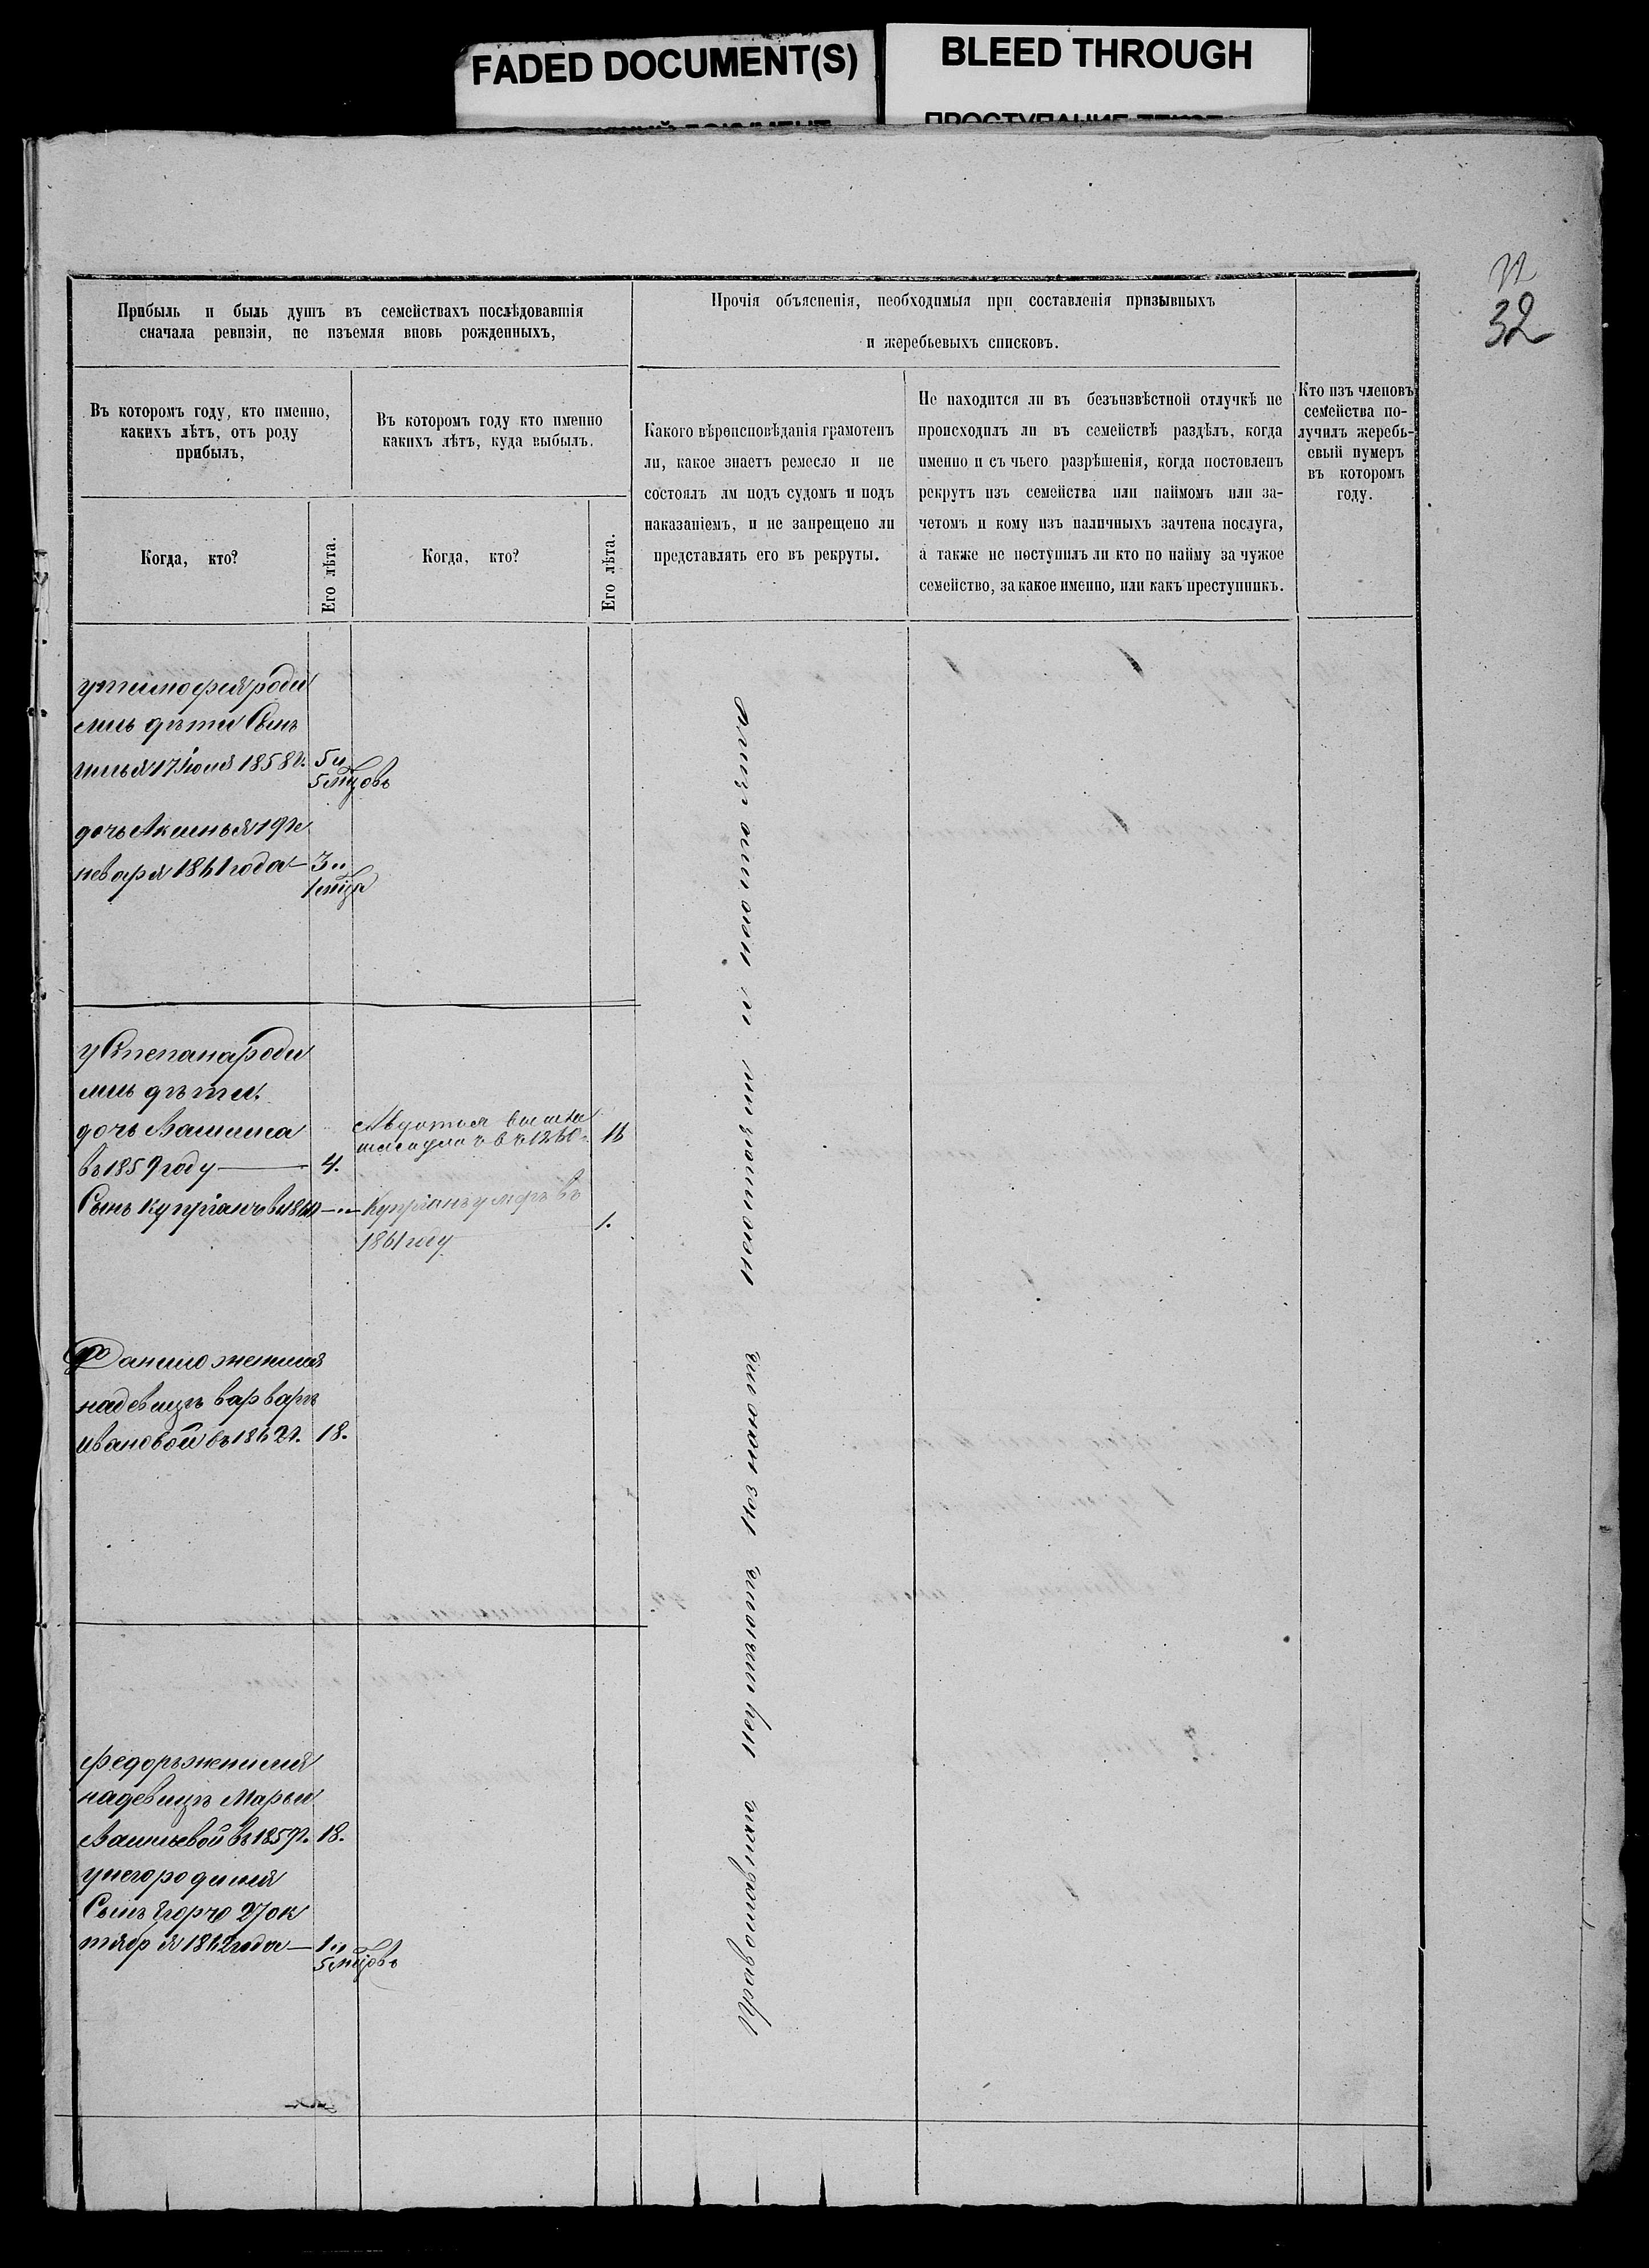 FADED DOCUMENT(S)
BLEED THROUGH
32
Прибыль и быль душъ въ семействахъ послѣдовавшія
сначала ревизіи, не изъемля вновь рожденныхъ,
Прочія объясненія, необходимыя при составленія призывныхъ
и жеребьевыхъ списковъ.
Въ которомъ году, кто именно,
какихъ лѣтъ, отъ роду
прибылъ,
Въ которомъ году кто именно
какихъ лѣтъ, куда выбылъ.
Какого вѣроисповѣданія грамотенъ
ли, какое знаетъ ремесло и не
состоялъ ли подъ судомъ и подъ
наказаніемъ, и не запрещено ли
представлять его въ рекруты.
Не находится ли въ безъизвѣстной отлучкѣ не
происходилъ ли въ семействѣ раздѣлъ, когда
именно и съ чьего разрѣшенія, когда постовленъ
рекрутъ изъ семейства или наймомъ или за-
четомъ и кому изъ наличныхъ зачтена послуга,
а также не поступилъ ли кто по найму за чужое
семейство, за какое именно, или какъ преступникъ.
Кто изъ членовъ
семейства по-
лучилъ жеребь-
евый нумеръ
въ которомъ
году.
Когда, кто?
Его лѣта.
Когда, кто?
Его лѣта.
у тимофея роди
лись дѣти Сынъ
илья 17 Іюня 1858 г. 5 и
5 мцовъ
дочь Аксинья 19 Ге
неваря 1861 года — 3 и
1 мца
у Степана роди
лись дѣти.
дочь Василиса
въ 1859 году — 4.
Авдотья вышла
въ 1860 г. 18
Сынъ Купріанъ в 1860 —
Купріанъ умеръ въ
1861 году 1.
Данило женился
на девицѣ варварѣ
ивановой въ 1862 г. 18.
федоръ женился
на девицѣ Марьи
Васильевой въ 1859 г. 18.
у него родился
Сынъ Егоръ 27 ок
тября 1862 года — 1 и
5 мцовъ
Православнаго неумѣютъ незнаютъ несостояли и